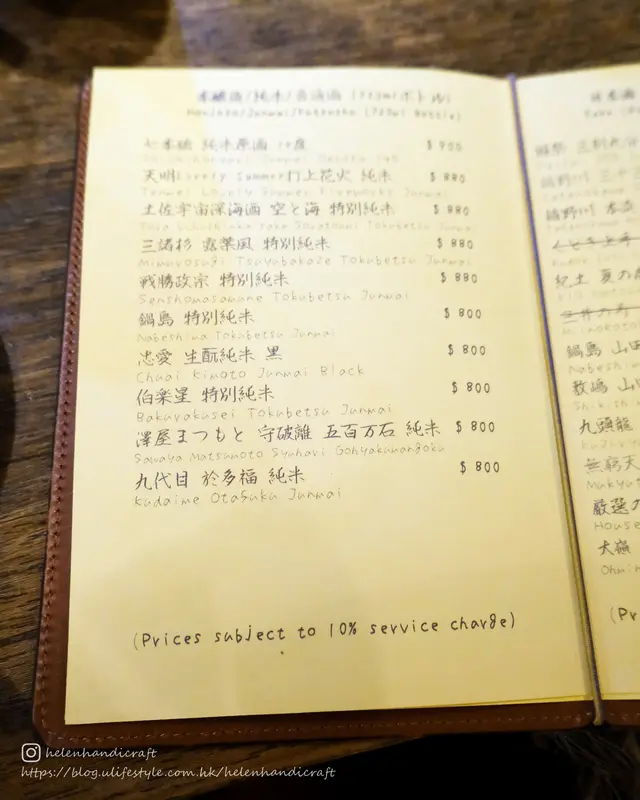 本醸造/純米/普通酒 (720mlボトル)
Honjozo/Junmai/Futsushu (720ml Bottle)
七本槍 純米原酒 $ 900
天明Lively Summer打上花火 純米 $ 880
Tenmei Lovely Summer Fireworks Junmai
土佐宇宙深海酒 空と海 特別純米 $ 880
Tokubetsu Junmai
三諸杉 露葉風 特別純米 $ 880
Mimurosugi Tsuyubakaze Tokubetsu Junmai
戦勝政宗 特別純米 $ 880
Senshomasamune Tokubetsu Junmai
鍋島 特別純米 $ 800
Nabeshima Tokubetsu Junmai
忠愛 生酛純米 黒 $ 800
Chuai Kimoto Junmai Black
伯楽星 特別純米 $ 800
Bakurakusei Tokubetsu Junmai
澤屋まつもと 守破離 五百万石 純米 $ 800
Sawaya Matsumoto Syuhari Gohyakumangoku
九代目 於多福 純米 $ 800
Kudaime Otafuku Junmai
(Prices subject to 10% service charge)
日本酒
紀土 夏の
鍋島 山田
Nabeshi
敷嶋 山田
Shikish
九頭龍
Kuzury
無窮天
Mukyut
厳選の
House
大嶺
Ohmin
(Pr
helenhandicraft
https://blog.ulifestyle.com.hk/helenhandicraft